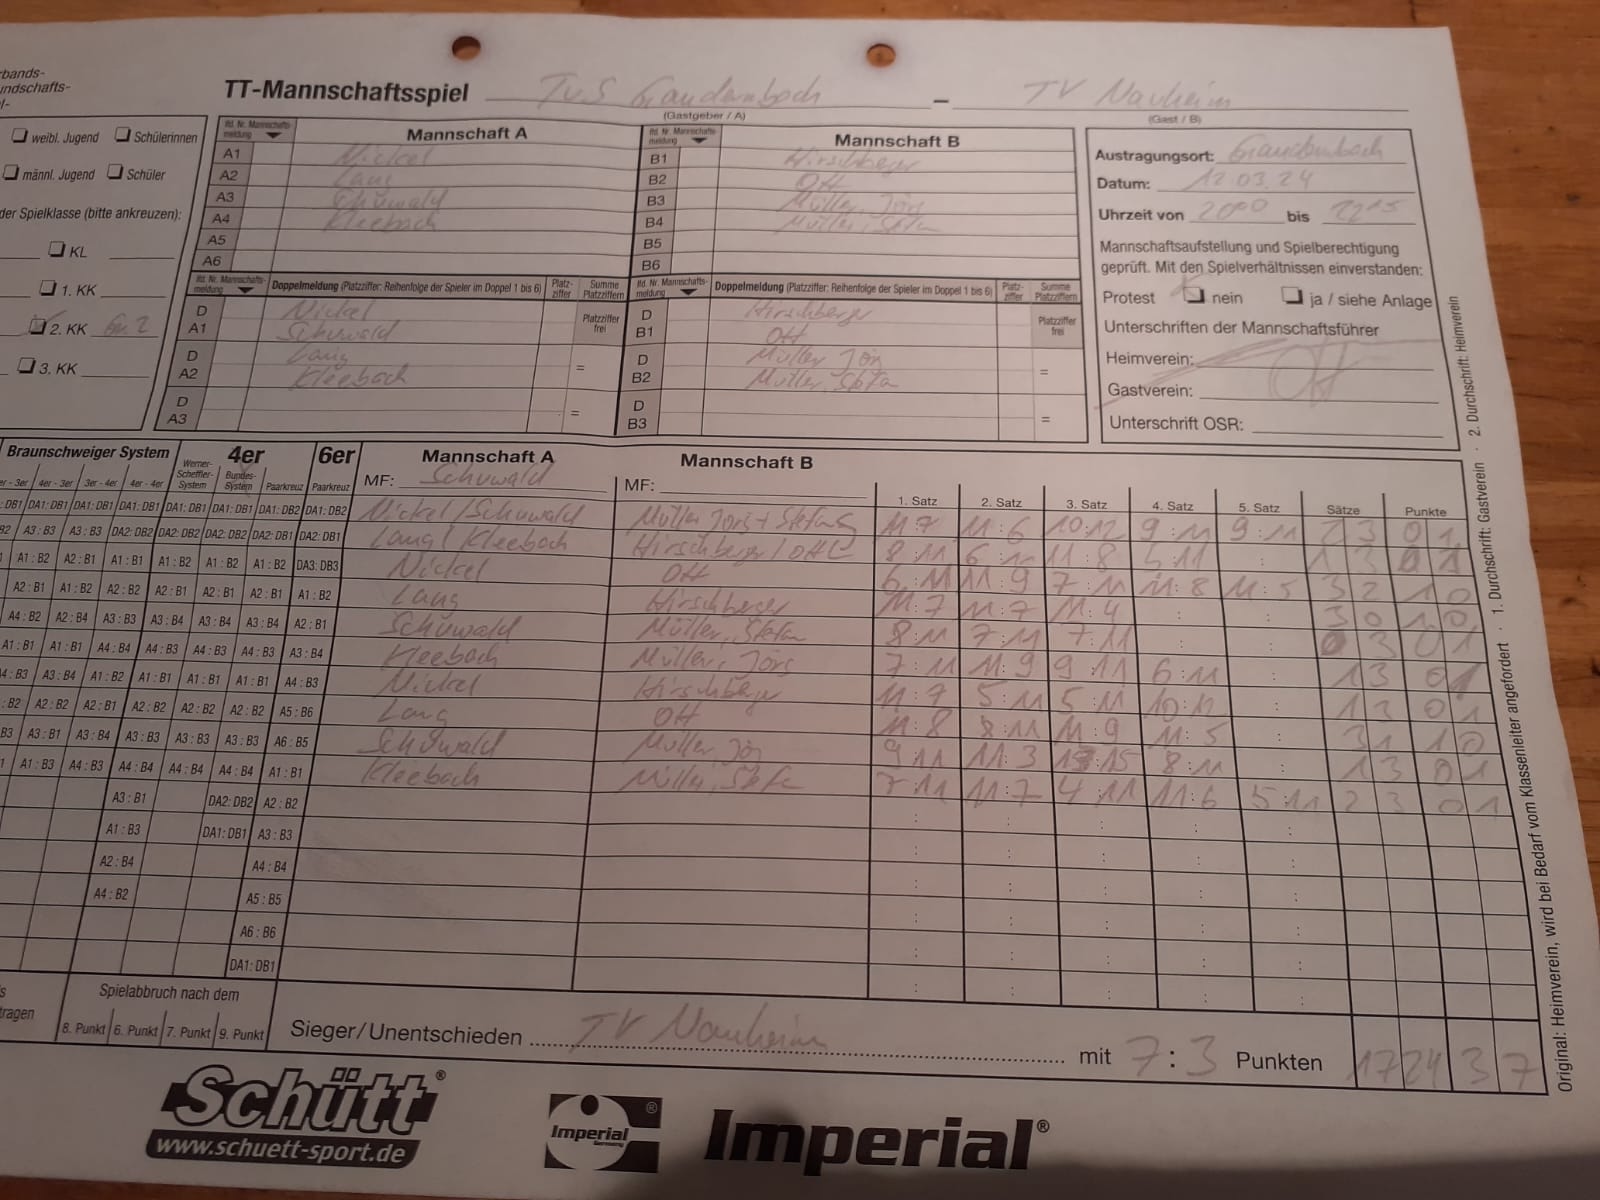 rbands-
undschafts-
TT-Mannschaftsspiel TuS Graudernbach – TV Nauheim
(Gastgeber / A) (Gast / B)
weibl. Jugend Schülerinnen
männl. Jugend Schüler
der Spielklasse (bitte ankreuzen):
KL
1. KK
2. KK Gr. 2
3. KK
lfd. Nr. Mannschafts-meldung Mannschaft A lfd. Nr. Mannschafts-meldung Mannschaft B
A1 Nickel B1 Hirschberger
A2 Lang B2 Ott
A3 Schuwald B3 Müller, Jörg
A4 Kleebach B4 Müller, Stefan
A5 B5
A6 B6
lfd. Nr. Mannschafts-meldung Doppelmeldung (Platzziffer: Reihenfolge der Spieler im Doppel 1 bis 6) Platz-ziffer Summe Platzziffern lfd. Nr. Mannschafts-meldung Doppelmeldung (Platzziffer: Reihenfolge der Spieler im Doppel 1 bis 6) Platz-ziffer Summe Platzziffern
D Nickel Platzziffer frei D Hirschberger Platzziffer frei
A1 Schuwald B1 Ott
D Lang D Müller Jör
A2 Kleebach = B2 Müller, Stefa =
D D
A3 = B3 =
Austragungsort: Graudernbach
Datum: 12.03.24
Uhrzeit von 2000 bis 2215
Mannschaftsaufstellung und Spielberechtigung
geprüft. Mit den Spielverhältnissen einverstanden:
Protest nein ja / siehe Anlage
Unterschriften der Mannschaftsführer
Heimverein:
Gastverein:
Unterschrift OSR:
Braunschweiger System Werner-Scheffler-System 4er Bundes-System Paarkreuz 6er Paarkreuz
er - 3er 4er - 3er 3er - 4er 4er - 4er
Mannschaft A Mannschaft B
MF: Schuwald MF:
1. Satz 2. Satz 3. Satz 4. Satz 5. Satz Sätze Punkte
: DB1 DA1: DB1 DA1: DB1 DA1: DB1 DA1: DB1 DA1: DB1 DA1: DB2 DA1: DB2 Nickel/Schuwald Müller Jörg + Stefan 11:7 11:6 10:12 9:11 9:11 2 3 0 1
B2 A3 : B3 A3 : B3 DA2: DB2 DA2: DB2 DA2: DB2 DA2: DB1 DA2: DB1 Lang/Kleebach Hirschberger/Ott 8:11 6:11 11:8 5:11 : 1 3 0 1
A1 : B2 A2 : B1 A1 : B1 A1 : B2 A1 : B2 A1 : B2 DA3: DB3 Nickel Ott 6:11 11:9 7:11 11:8 11:5 3 2 1 0
A2 : B1 A1 : B2 A2 : B2 A2 : B1 A2 : B1 A2 : B1 A1 : B2 Lang Hirschberger 11:7 11:7 11:4 : : 3 0 1 0
A4 : B2 A2 : B4 A3 : B3 A3 : B4 A3 : B4 A3 : B4 A2 : B1 Schuwald Müller, Stefan 8:11 7:11 7:11 : : 0 3 0 1
A1 : B1 A1 : B1 A4 : B4 A4 : B3 A4 : B3 A4 : B3 A3 : B4 Kleebach Müller, Jörg 7:11 11:9 9:11 6:11 : 1 3 0 1
A4 : B3 A3 : B4 A1 : B2 A1 : B1 A1 : B1 A1 : B1 A4 : B3 Nickel Hirschberger 11:7 5:11 5:11 10:12 : 1 3 0 1
: B2 A2 : B2 A2 : B1 A2 : B2 A2 : B2 A2 : B2 A5 : B6 Lang Ott 11:8 8:11 11:9 11:5 : 3 1 1 0
B3 A3 : B1 A3 : B4 A3 : B3 A3 : B3 A3 : B3 A6 : B5 Schuwald Müller Jör 9:11 11:3 13:15 8:11 : 1 3 0 1
1 A1 : B3 A4 : B3 A4 : B4 A4 : B4 A4 : B4 A1 : B1 Kleebach Müller, Stefa 7:11 11:7 4:11 11:6 5:11 2 3 0 1
A3 : B1 DA2: DB2 A2 : B2
A1 : B3 DA1: DB1 A3 : B3
A2 : B4 A4 : B4
A4 : B2 A5 : B5
A6 : B6
DA1: DB1
tragen Spielabbruch nach dem
8. Punkt 6. Punkt 7. Punkt 9. Punkt
Sieger/Unentschieden TV Nauheim mit 7 : 3 Punkten 17 24 3 7
Original: Heimverein, wird bei Bedarf vom Klassenleiter angefordert · 1. Durchschrift: Gastverein · 2. Durchschrift: Heimverein
Schütt®
www.schuett-sport.de
Imperial ®
Germany
Imperial®